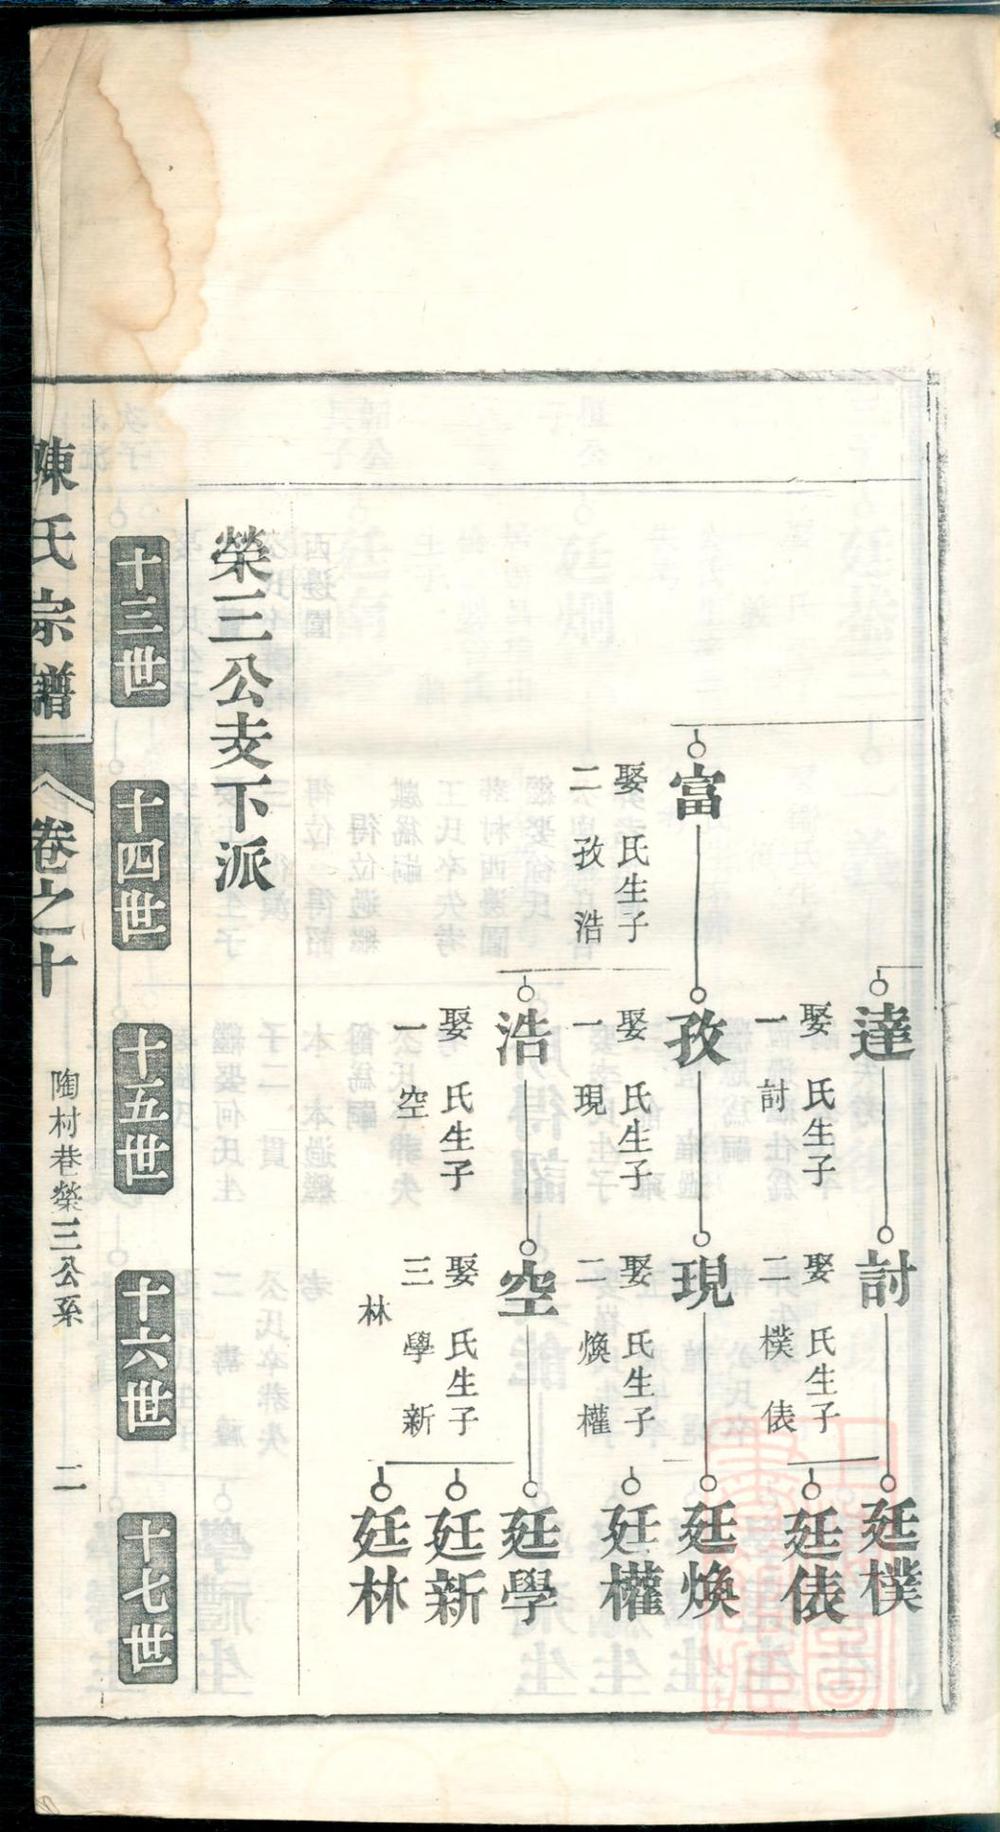 達
娶 氏生子
一 討
討
娶 氏生子
二 樸 俵
廷樸
廷俵
富
娶 氏生子
二 孜 浩
孜
娶 氏生子
一 現
現
娶 氏生子
二 煥 權
廷煥
廷權
浩
娶 氏生子
一 空
空
娶 氏生子
三 學 新
林
廷學
廷新
廷林
榮三公支下派
十三世
十四世
十五世
十六世
十七世
陳氏宗譜
卷之十
陶村巷榮三公系
二